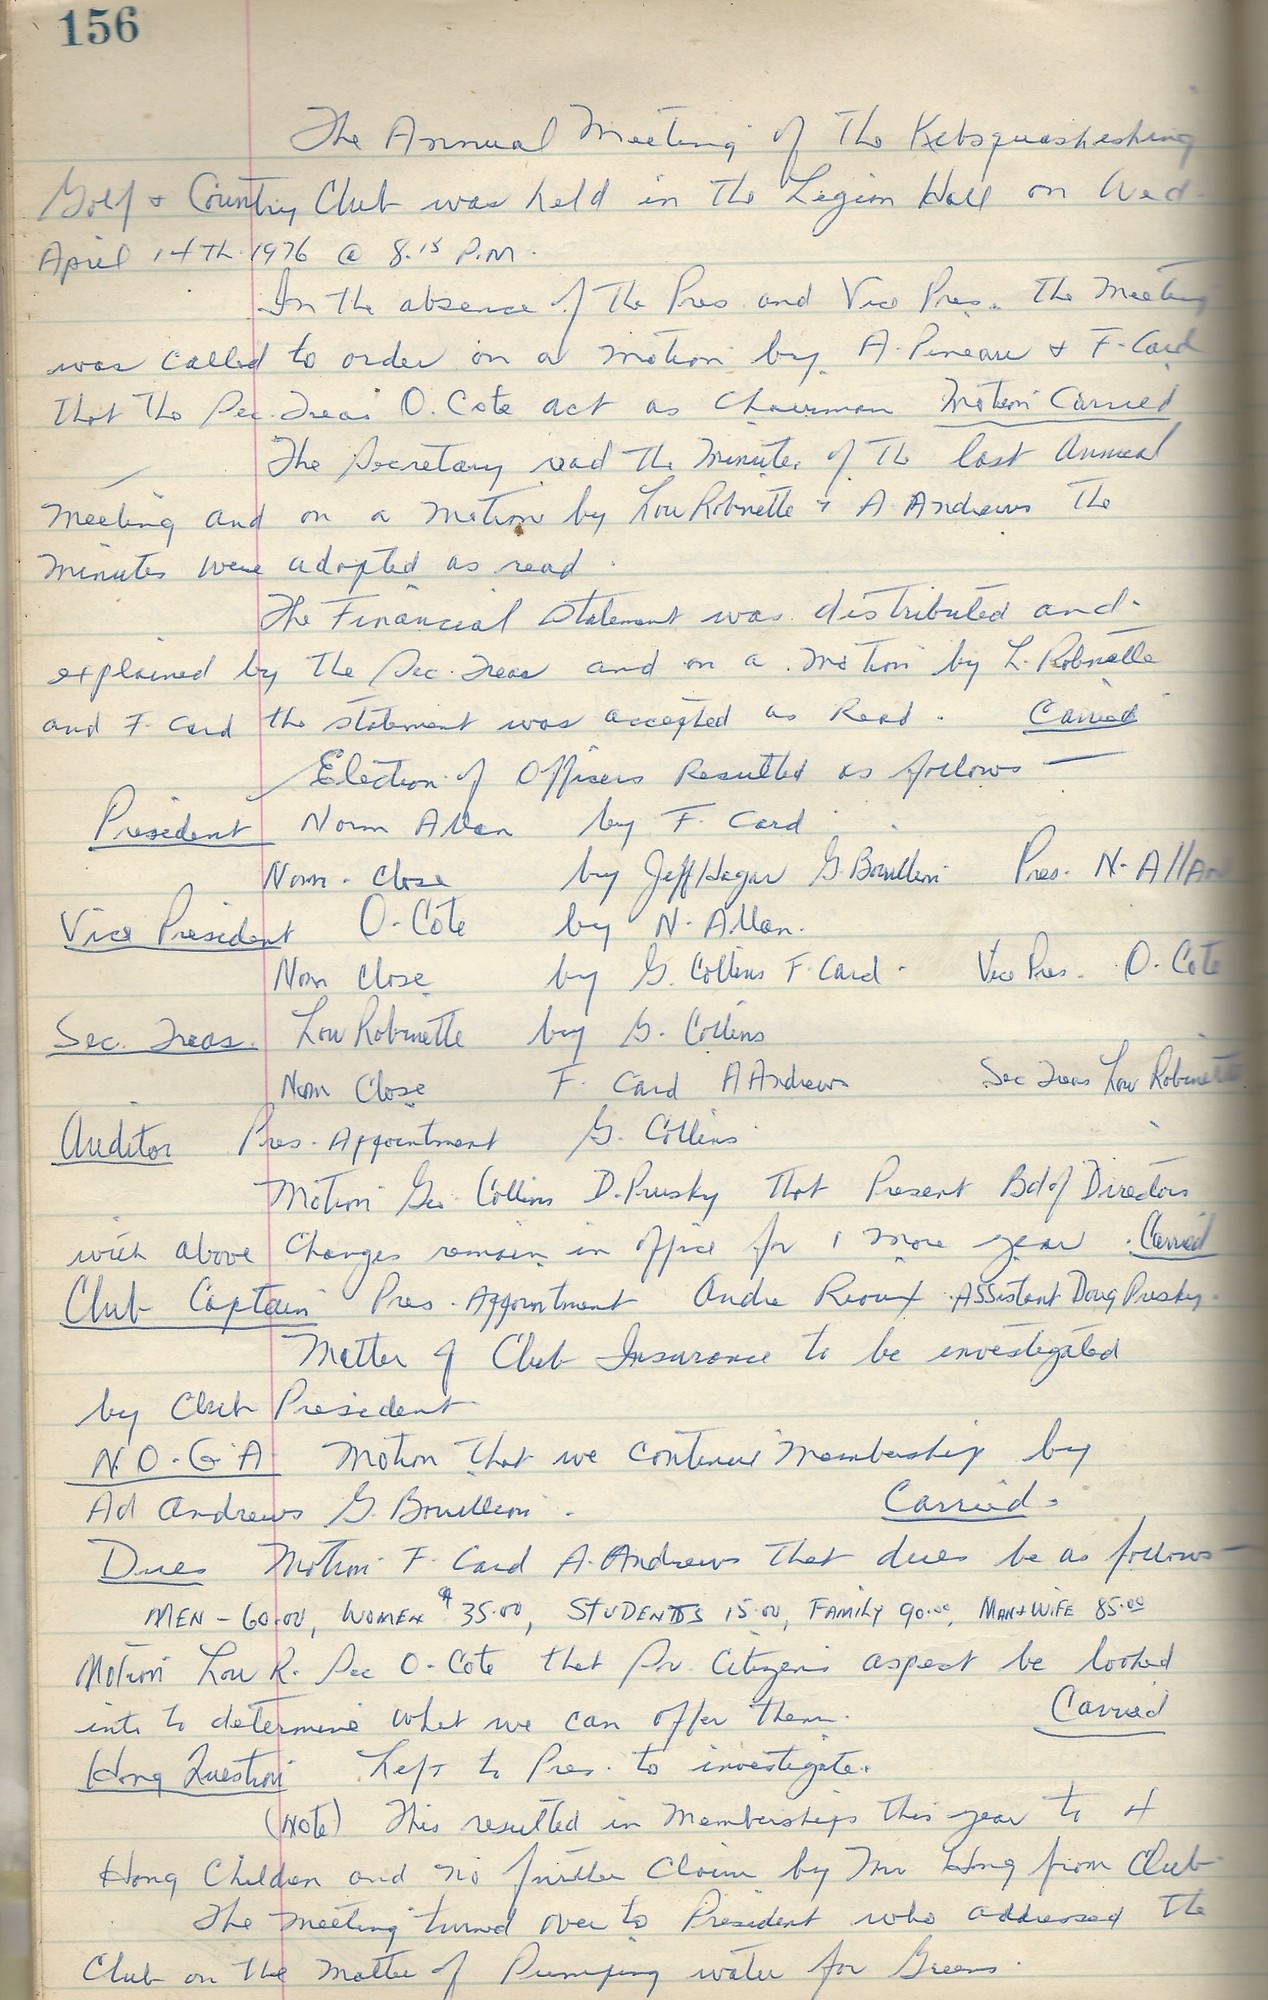 156
The Annual Meeting of the Kebsquasheshing
Golf & Country Club was held in the Legion Hall on Wed.
April 14TH 1976 @ 8.15 P.M.
In the absence of the Pres and Vice Pres. the Meeting
was called to order on a motion by A. Pineau & F. Card
that the Sec. Treas O. Cote act as Chairman Motion Carried
The Secretary read the Minutes of the last Annual
Meeting and on a motion by Lou Robinette & A Andrews the
Minutes were adopted as read.
The Financial Statement was distributed and
explained by the Sec. Treas and on a motion by L. Robinette
and F. Card the statement was accepted as Read. Carried
Election of Officers Resulted as follows —
President Norm Allan by F. Card
Nom. Close by Jeff Hagar G. Bouillion Pres. N. Allan
Vice President O. Cote by N. Allan.
Nom Close by G. Collins F. Card. Vice Pres. O. Cote
Sec. Treas. Lou Robinette by G. Collins
Nom Close F. Card A Andrews Sec Treas Lou Robinette
Auditor Pres. Appointment G. Collins
Motion Geo. Collins D. Prusky that Present Bd of Directors
with above changes remain in office for 1 more year. Carried
Club Captain Pres. Appointment Andre Rioux Assistant Doug Prusky.
Matter of Club Insurance to be investigated
by Club President
N.O.G.A Motion that we continue Membership by
Ad Andrews G. Bouillion. Carried.
Dues Motion F. Card A. Andrews that dues be as follows —
MEN - 60.00, WOMEN $35.00, STUDENTS 15.00, FAMILY 90.00, MAN & WIFE 85.00
Motion Lou R. Sec O. Cote that Sr. Citizens aspect be looked
into to determine what we can offer them. Carried
Hong Question Left to Pres. to investigate.
(Note) This resulted in Memberships this year to 4
Hong Children and no further claim by Mr Hong from Club.
The meeting turned over to President who addressed the
Club on the Matter of Pumping water for Greens.